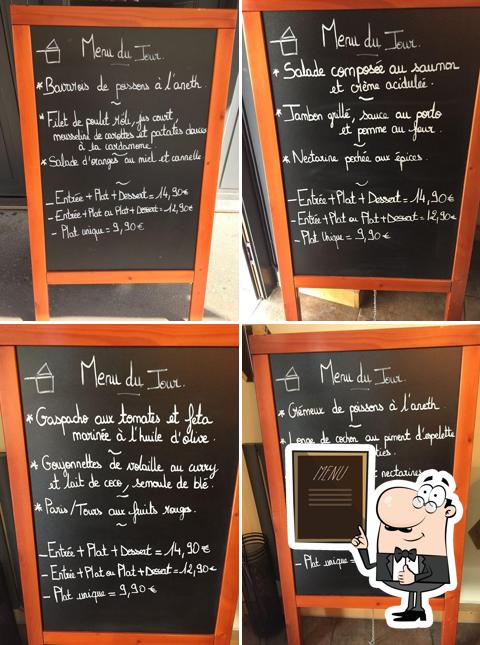 Menu du Jour.
* Bavarois de poissons à l'aneth.
* Filet de poulet rôti, jus court,
mousseline de carottes et patates douces
à la cardamome.
* Salade d'oranges au miel et cannelle
- Entrée + Plat + Dessert = 14,90€
- Entrée + Plat ou Plat + Dessert = 12,90€
- Plat unique = 9,90€
Menu du Jour.
* Salade composée au saumon
et crème acidulée.
* Jambon grillé, sauce au porto
et pomme au four.
* Nectarine pochée aux épices.
- Entrée + Plat + Dessert = 14,90€
- Entrée + Plat ou Plat + Dessert = 12,90€
- Plat Unique = 9,90€
Menu du Jour.
* Gaspacho aux tomates et feta
marinée à l'huile d'olive.
* Goujonnettes de volaille au curry
et lait de coco, semoule de blé.
* Paris/Tours aux fruits rouges.
- Entrée + Plat + Dessert = 14,90€
- Entrée + Plat ou Plat + Dessert = 12,90€
- Plat unique = 9,90€
Menu du Jour.
* Crémeux de poissons à l'aneth.
* Longe de cochon au piment d'espelette
nectarines
MENU
- Plat unique =